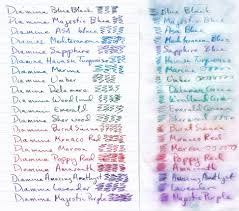 Diamine Blue Black Blue Black
Diamine Majestic Blue Majestic Blue
Diamine Asa Blue Asa Blue
Diamine Mediterranean Mediterranean
Diamine Sapphire Sapphire Blue
Diamine Havasu Turquoise Havasu Turquoise
Diamine Marine Marine
Diamine Umber Umber
Diamine Delamere Delamere Green
Diamine Woodland Woodland Green
Diamine Emerald Emerald
Diamine Sherwood Sherwood
Diamine Burnt Sienna Burnt Sienna
Diamine Monaco Red Monaco Red
Diamine Maroon Maroon
Diamine Poppy Red Poppy Red
Diamine Amazing Amethyst Amazing Amethyst
Diamine Lavender Lavender
Diamine Majestic Purple Majestic Purple